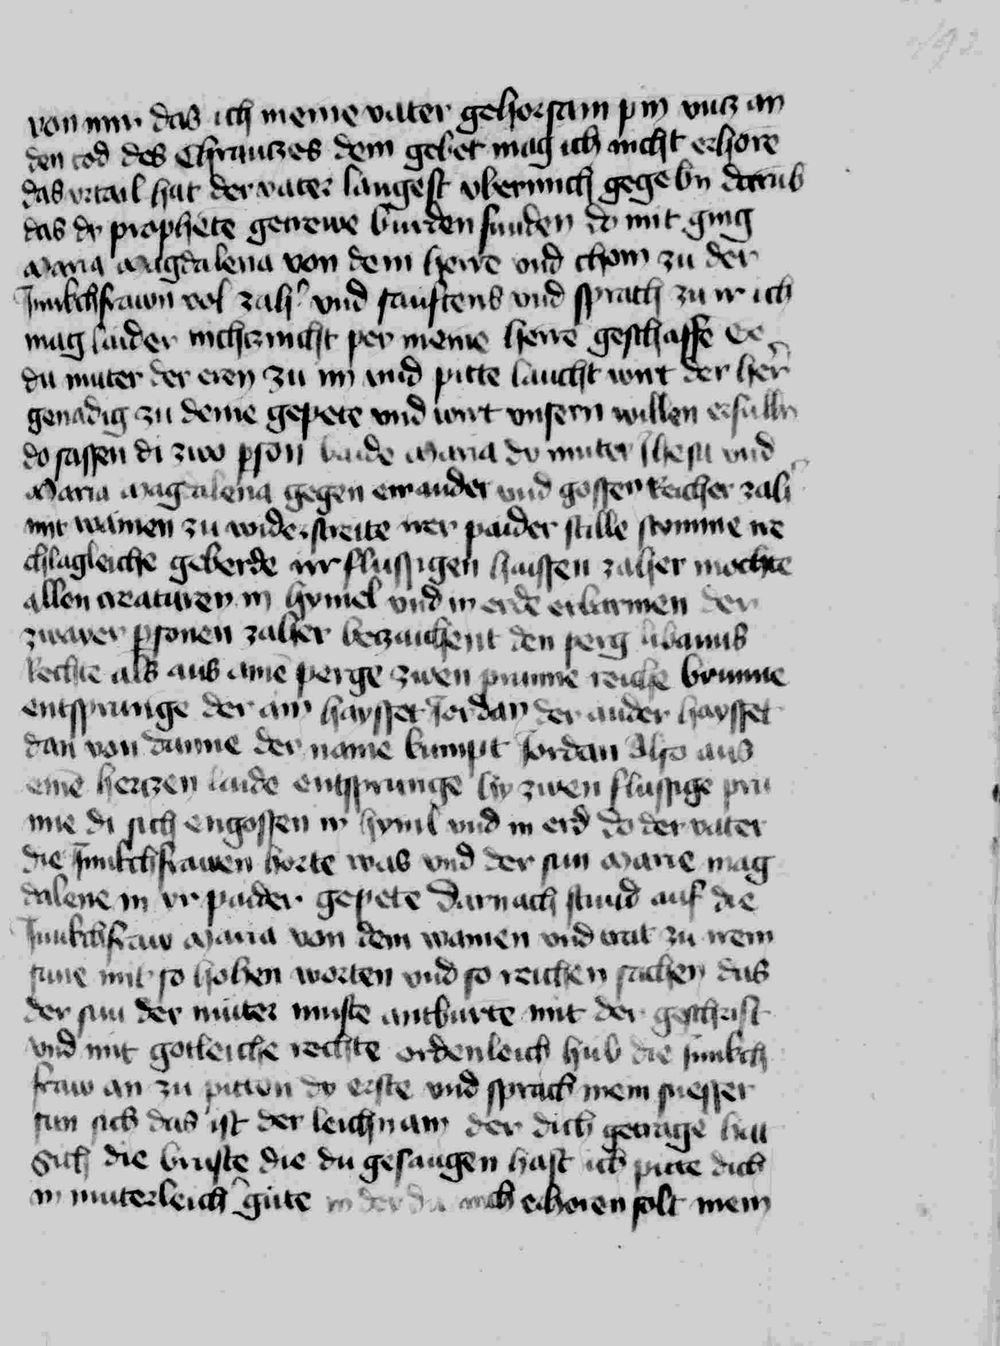 von mir das ich meine vater gehorsam pin vncz an
den tod des Chrauczes dein gebet mag ich nicht erhore
das vrtail hat der vater langest vber mich gegebn darub
das dy prophete getrewe funden do mit ging
Maria Magdalena von dem herre vnd chom zu der
Junkchfrawn vol zah' vnd saufftens vnd sprach zu ir ich
mag laider nichcznicht per meine herre geschaffe Ge
du muter der eren zu im vnd pitte laucht wirt der her
genadig zu deine gepete vnd wirt vnsern willen erfulln
do sassen di zwo pson baide Maria dy muter Jhesu vnd
Maria Magdalena gegen einander vnd gossen Reicher zah'
mit wainen zu widerstreite irer paider stille stomme ire
chlagleiche geberde irr flussigen haissen zaher mochte
allen creaturen in hymel vnd in erde erbarmen der
zwayer psonen zaher beczaichent den perg libanus
Rechte als aus aine perge zwen prunne reiche brunne
entsprunge der ain haysset Jordan der ander haysset
dan von danne der name kumpt Jordan Also aus
eine herczen laide entsprunge hy zwen flussige pru
nne di sich engossen in hymil vnd in erd do der vater
die Junkchfrawen horte was vnd der sun Marie mag
dalene in yr paider gepete Darnach stund auf die
Junkchfraw Maria von dem wainen vnd trat zu irem
sune mit so hohen worten vnd so reichen sachen das
der sun der muter muste antburte mit der geschrift
vnd mit gotleiche rechte ordenleich hub die Junkch
fraw an zu pitten dy erste vnd sprach mein suesser
sun sich das ist der leichnam der dich getrage hat
Sich die bruste die du gesaugen hast ich pitte dich
in muterleich' gute in der du mich erhoren solt mein